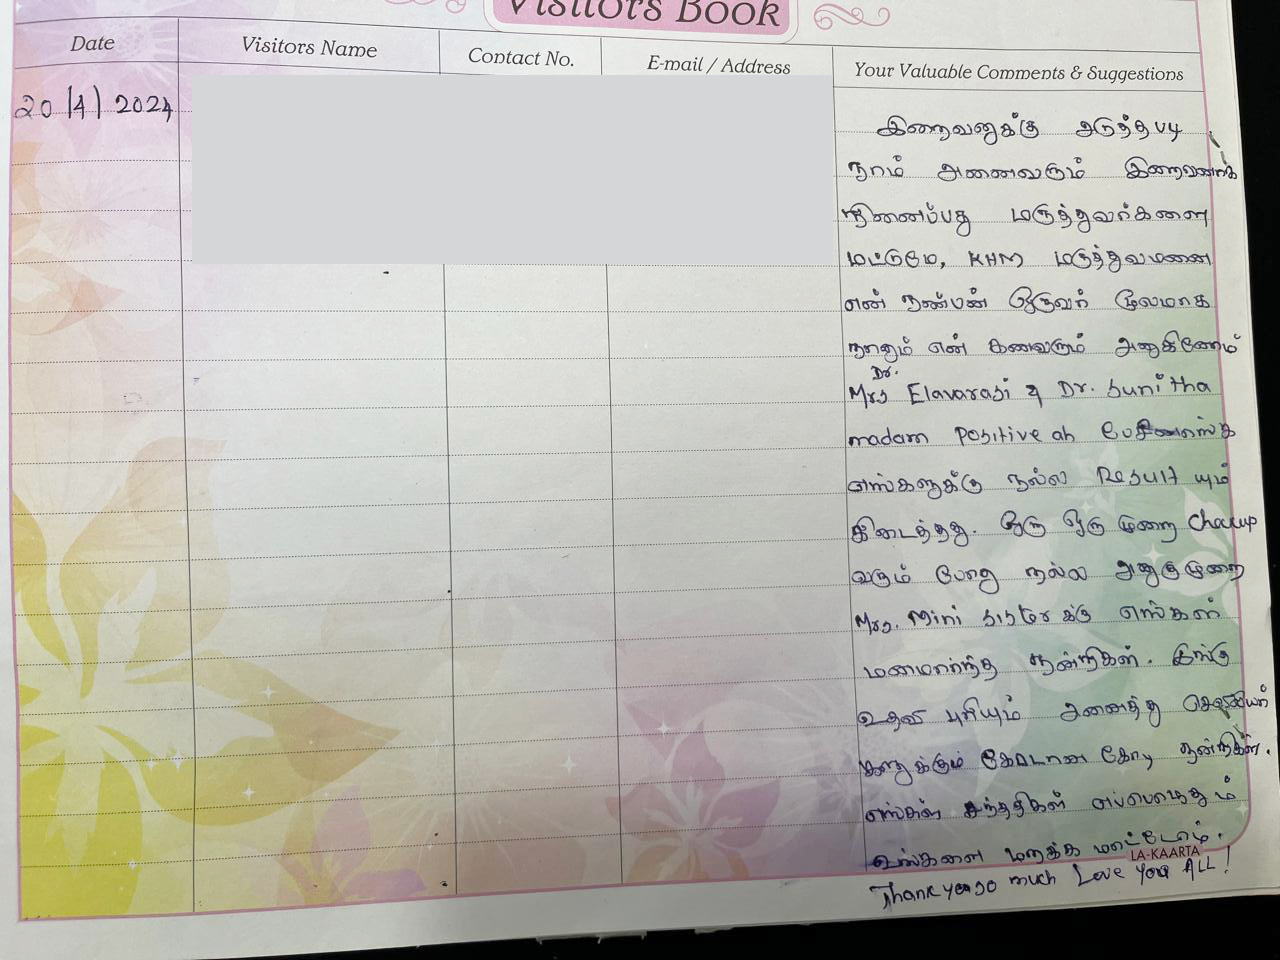 Visitors Book
Date Visitors Name Contact No. E-mail / Address Your Valuable Comments & Suggestions
20/4/2024
இறைவனுக்கு அடுத்தபடி
நாம் அனைவரும் இறைவனாக
நினைப்பது மருத்துவர்களை
மட்டுமே, KHM மருத்துவமனை
என் நண்பன் ஒருவர் மூலமாக
நானும் என் கணவரும் அனுகினோம்
Dr.
Mrs Elavarasi & Dr. Sunitha
madam Positive ah
எங்களுக்கு நல்ல Result யும்
கிடைத்தது. ஒரு ஒரு முறை
வரும் போது நல்ல அனுகுமுறை
Mrs. Mini sister க்கு எங்கள்
மனமார்ந்த நன்றிகள். இங்கு
உதவி புரியும் அனைத்து
களுக்கும் கோடான கோடி நன்றிகள்.
எங்கள் சந்ததிகள் எப்பொழுதும்
உங்களை மறக்க மாட்டோம்.
LA-KAARTA
Thank you so much Love you ALL!